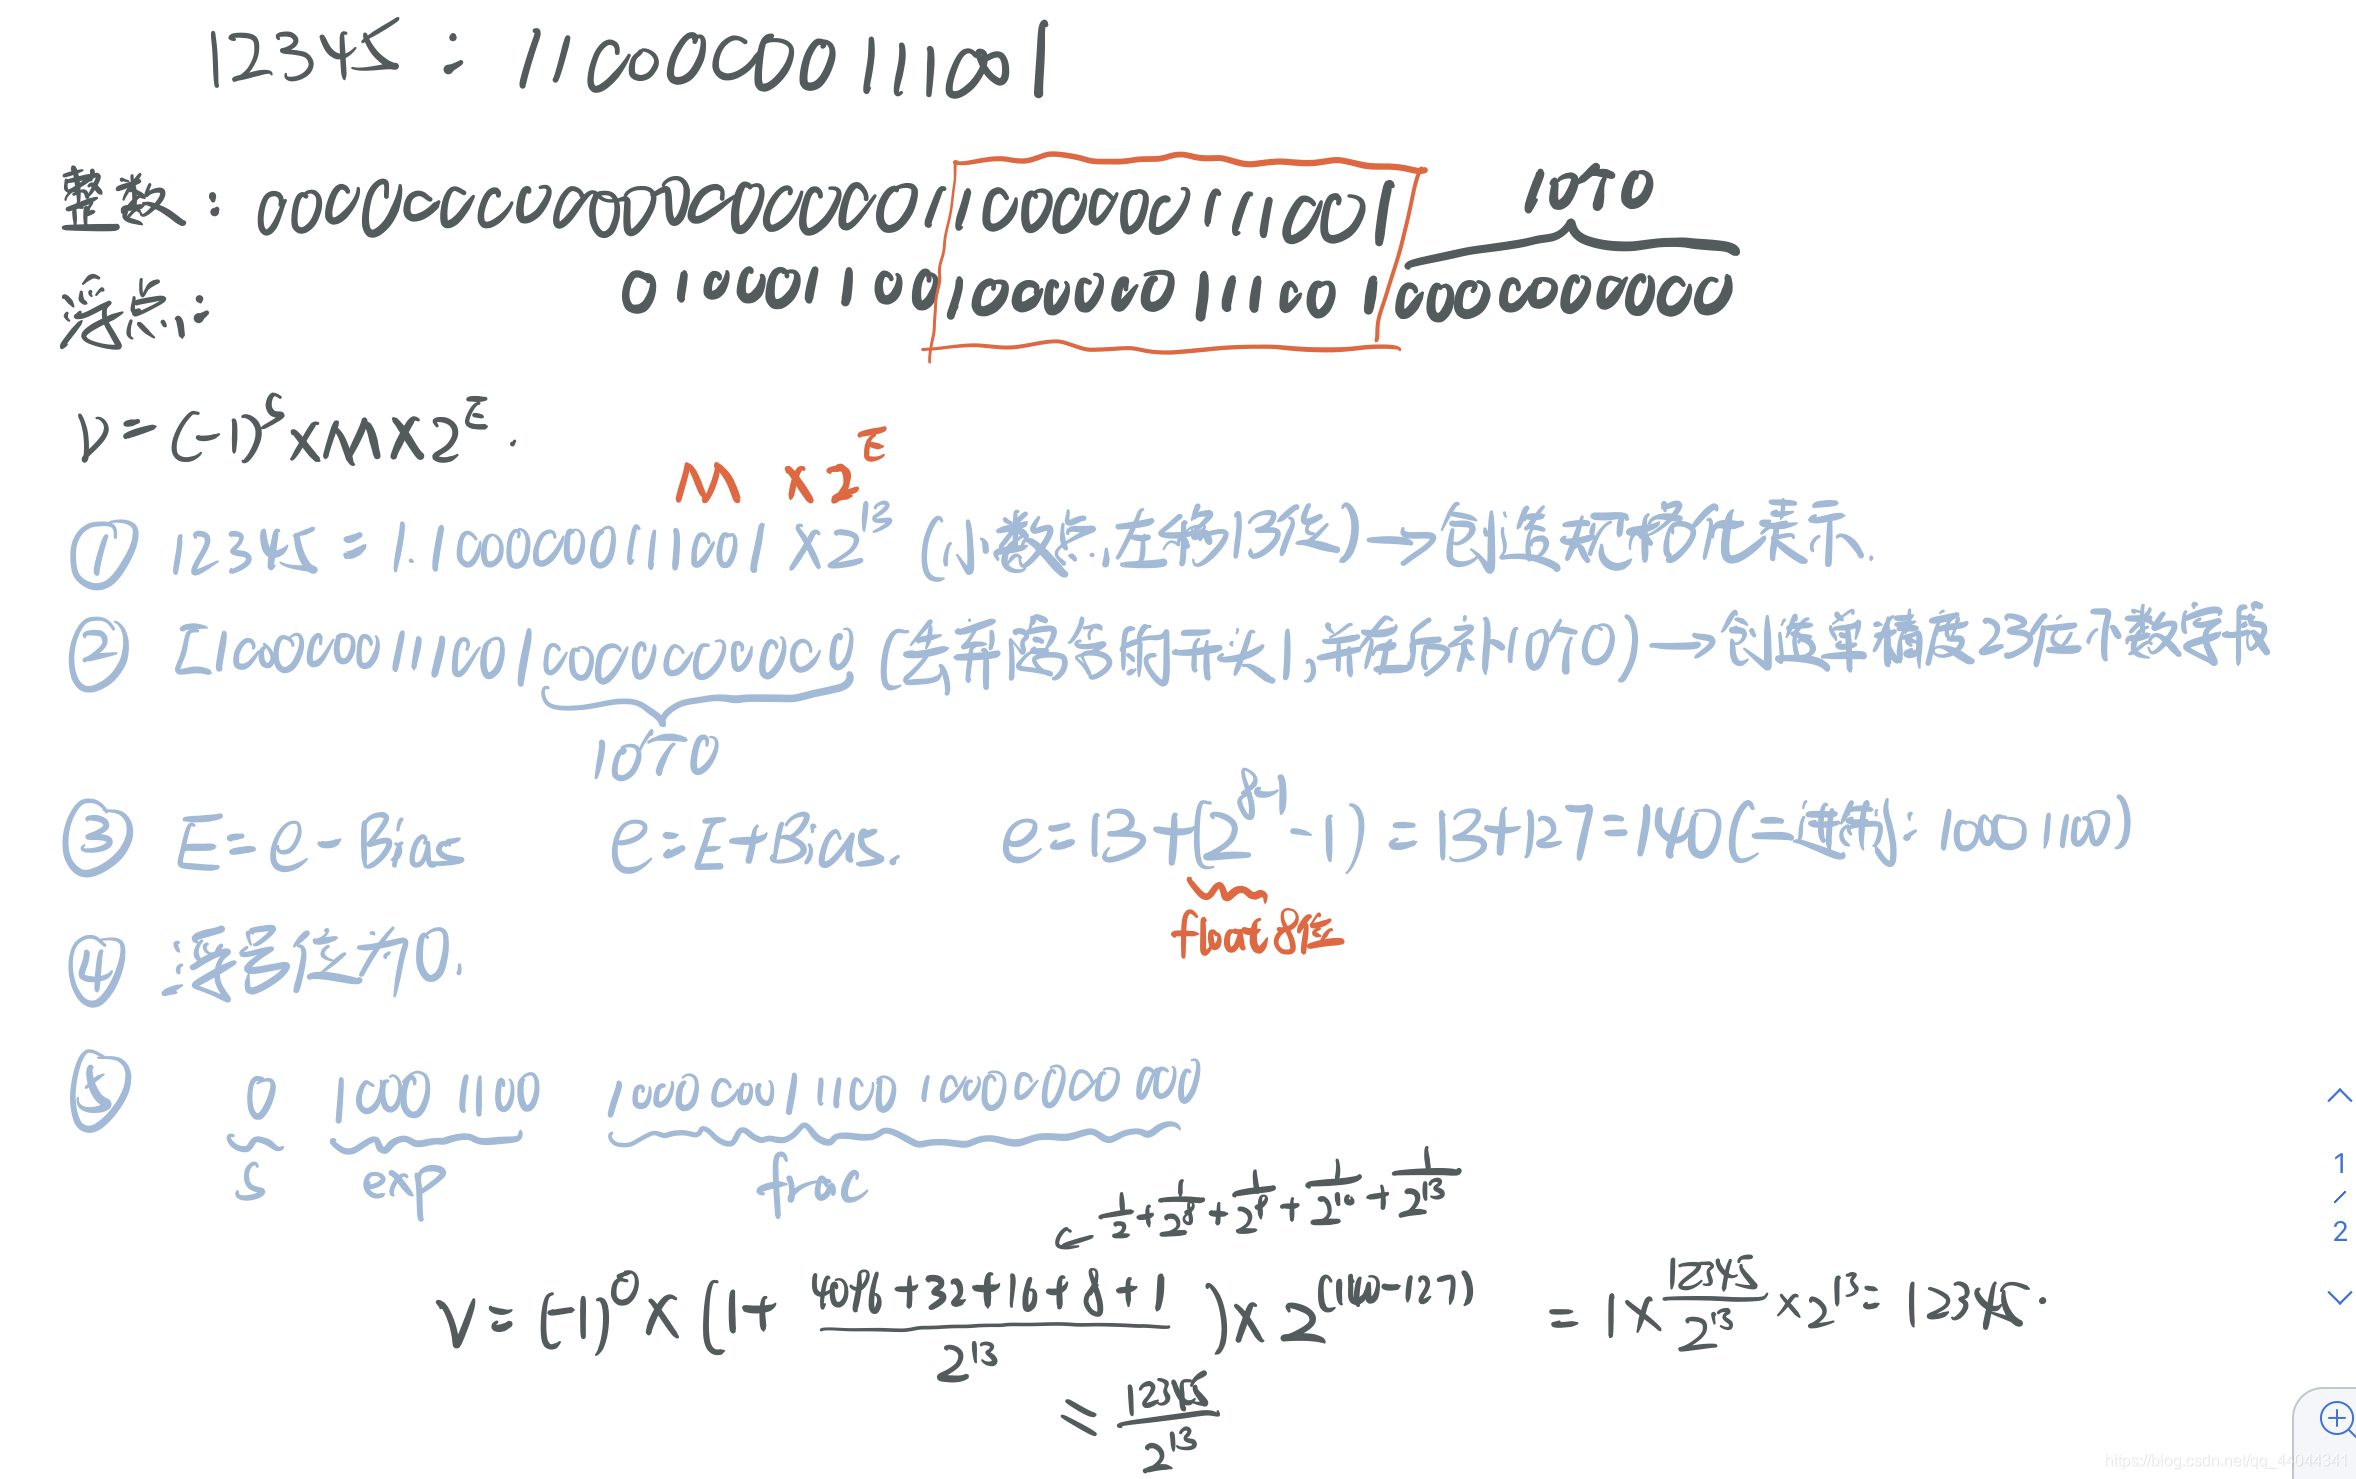 12345 : 11000000111001
整数 : 00000000000000000011000000111001 10个0
浮点 : 01000110010000001110010000000000
V = (-1)^S × M × 2^E .
M × 2^E
① 12345 = 1.1000000111001 × 2^13 (小数点左移13位) → 创造规格化表示.
② [1000000111001 0000000000 (丢弃隐含的开头1, 并在后补10个0) → 创造单精度23位小数字段
10个0
③ E = e - Bias e = E + Bias. e = 13 + (2^8-1 - 1) = 13 + 127 = 140 (二进制: 1000 1100)
float 8位
④ 符号位为0.
⑤ 0 10001100 1000 000 11100 10000000 000
s exp frac
← 1/2 + 1/2^8 + 1/2^9 + 1/2^10 + 1/2^13
V = (-1)^0 × (1 + (4096 + 32 + 16 + 8 + 1)/2^13) × 2^(140-127) = 1 × 12345/2^13 × 2^13 = 12345.
= 12345/2^13
1
/
2
https://blog.csdn.net/qq_44044341